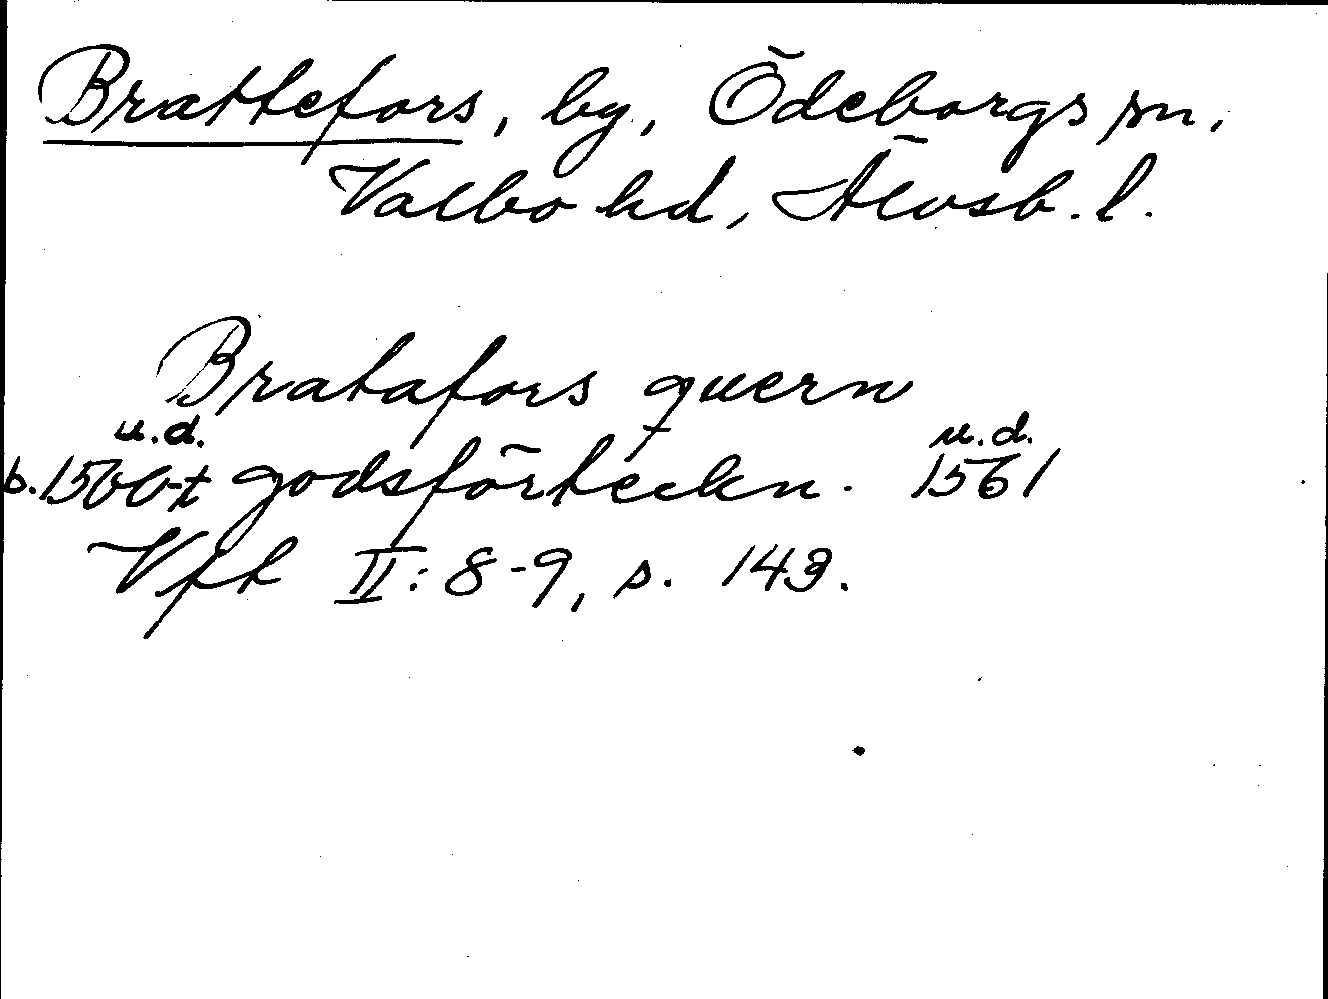 Brattefors, by, Ödeborgs sn,
Valbo hd, Älvsb. l.
Bratafors quern
u.d. u.d.
b. 1500-t godsförteckn. 1561
Vft II: 8-9, s. 143.